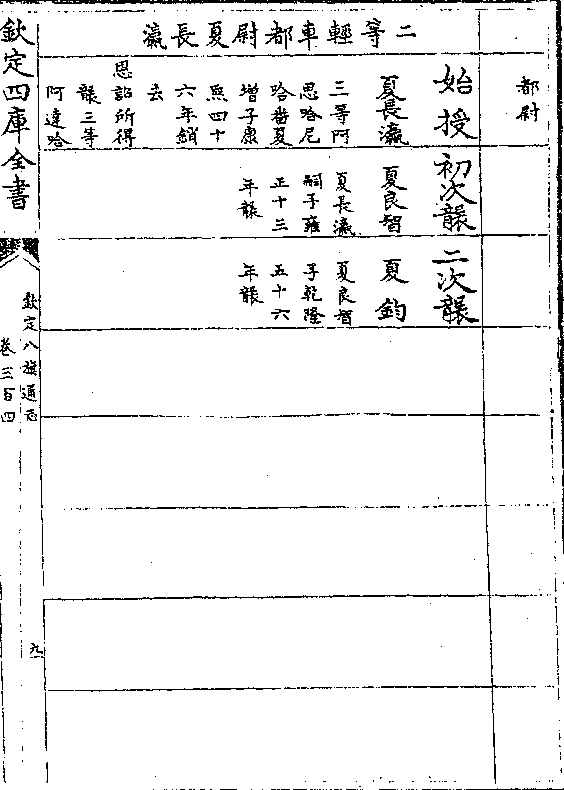 都尉
二等輕車都尉夏長瀛
始授
夏長瀛
三等阿
思哈尼
哈番夏
增子康
熙四十
六年銷
去
恩詔所得
襲三等
阿達哈
初次襲
夏良智
夏長瀛
嗣子雍
正十三
年襲
二次襲
夏鈞
夏良智
子乾隆
五十六
年襲
欽定四庫全書
欽定八旗通志
卷三百四
九